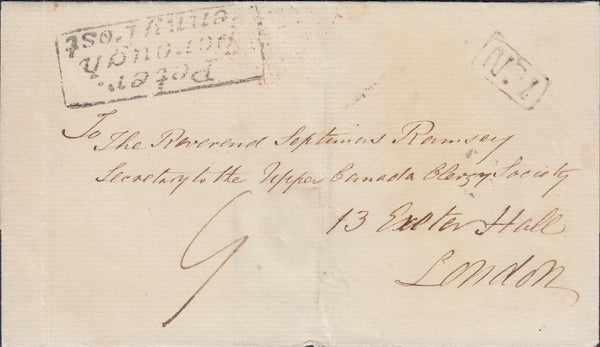 Peter.
borough
Penny Post
No. 1
To
The Reverend Septimus Ramsey
Secretary to the Upper Canada Clergy Society
13 Exeter Hall
London
9